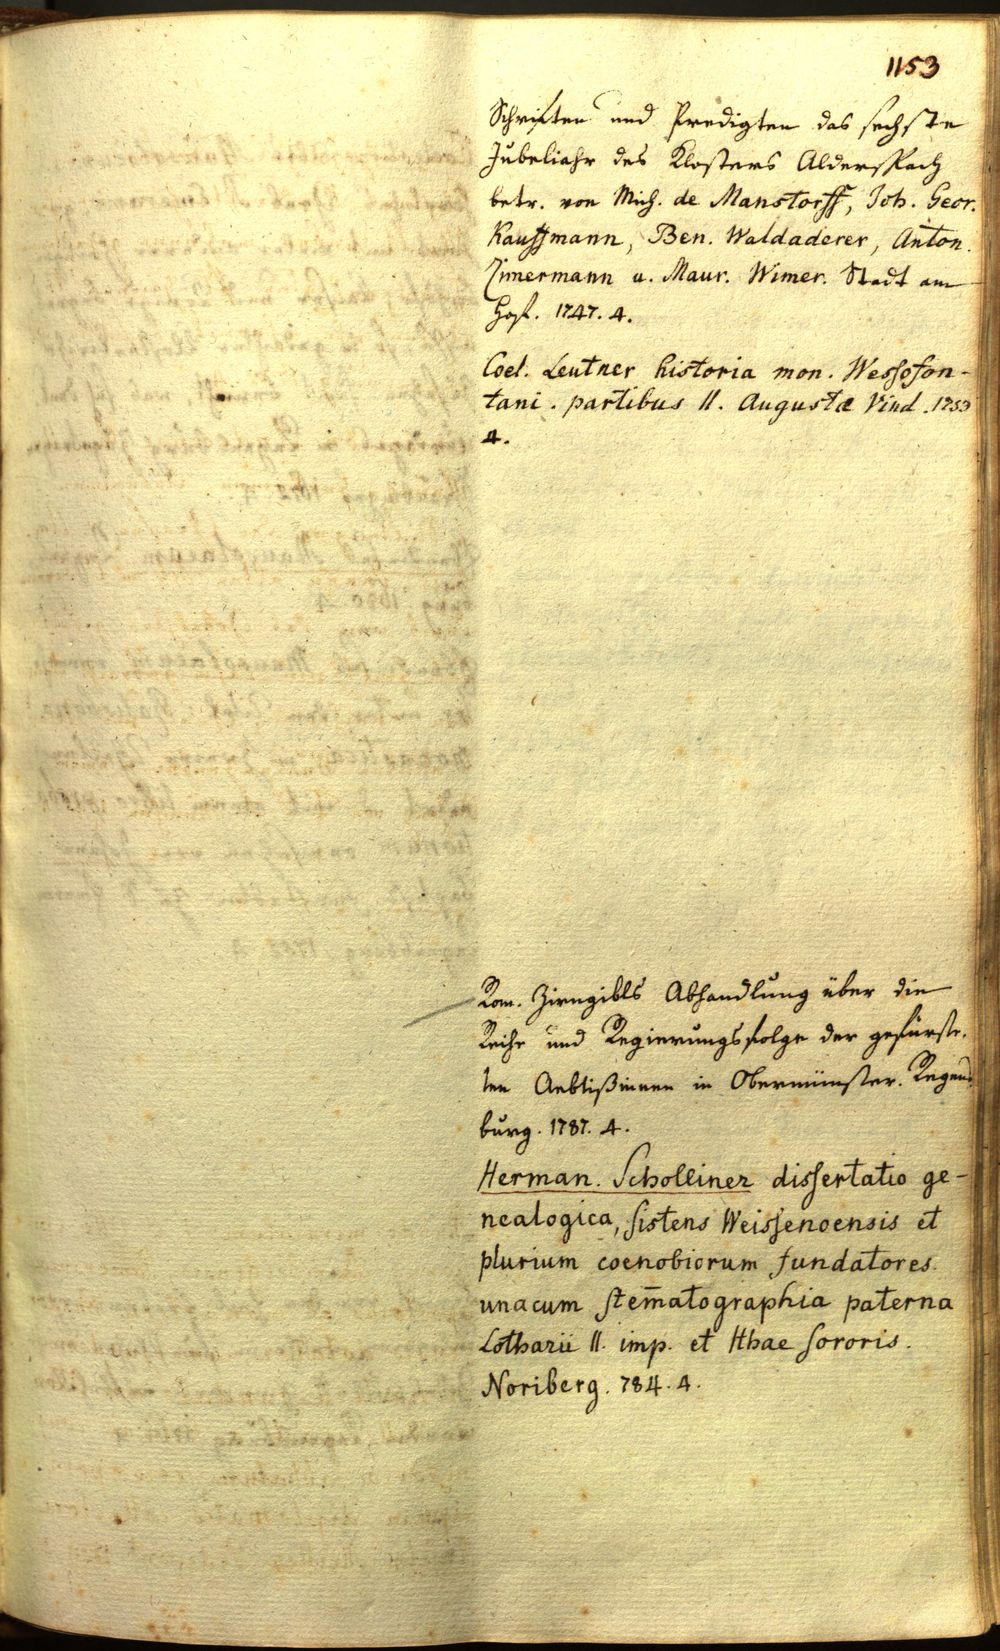 1153
Schriften und Predigten das sechste
Jubeljahr des Klosters Alderspach
betr. von Mich. de Manstorff, Joh. Geor.
Kauffmann, Ben. Waldaderer, Anton.
Zim̄ermann u. Maur. Wimer. Stadt am
Hof. 1747. 4.
Coel. Leutner historia mon. Wessofon-
tani. partibus II. Augustæ Vind. 1753
4.
Rom. Zirngibls Abhandlung über die
Reihe und Regierungsfolge der gefürste-
ten Aebtißinnen in Obermünster. Regens-
burg. 1787. 4.
Herman. Scholliner dissertatio ge-
nealogica, sistens Weissenoensis et
plurium coenobiorum fundatores.
unacum stem̄atographia paterna
Lotharii II. imp. et Ithae sororis.
Noriberg. 784. 4.